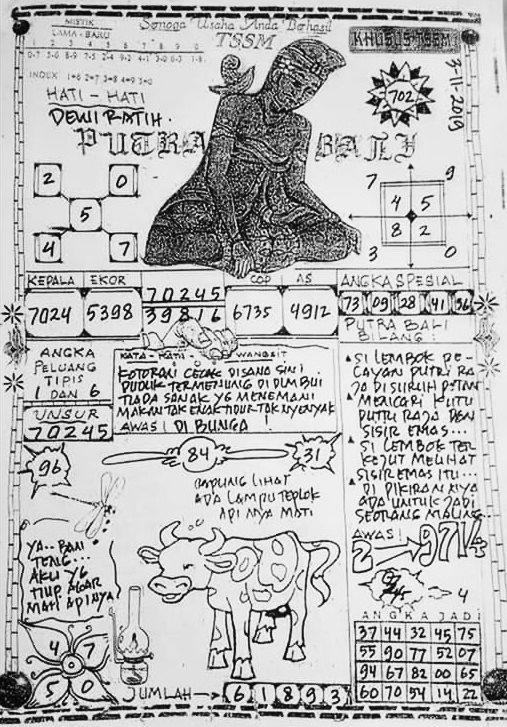 MISTIK
LAMA - BARU
1 2 3 4 5 6 7 8 9 0
INDEX 1=6 2=7 3=8 4=9 5=0
Semoga Usaha Anda Berhasil
TSSM
KHUSUS TSSM
3-11-2019
702
HATI - HATI
DEWI RATIH.
PUTRA BALI
2 0
5
4 7
7 9
4 5
8 2
3 0
KEPALA EKOR
7024 5398
70245
39816
COP AS
6735 4912
ANGKA SPESIAL
73 09 28 41 56
ANGKA
PELUANG
TIPIS
1 DAN 6
UNSUR
70245
KATA - HATI - WANGSIT
KOTORAN CECAK DISANA SINI
DUDUK TERMENUNG DI
TIADA SANAK YG MENEMANI
MAKAN TAK ENAK TIDUR TAK NYENYAK
AWAS! DI BUNGA !
PUTRA BALI
BILANG:
SI LEMBOK PE-
LAYAN PUTRI RA
JA DISURUH
MENCARI KUTU
PUTU RAJA DGN
SISIR EMAS...
SI LEMBOK TER
KEJUT MELIHAT
SISIR EMAS ITU...
DI PIKIRANNYA
ADA UNTUK JADI
SEORANG MALING
AWAS!
2 → 9714
4
96
84
31
CAPUNG LIHAT
ADA LAMPU TEPLOK
API NYA MATI
YA.. BAN
TENG...
AKU YG
TIUP AGAR
MATI APINYA
4 7
5 0
JUMLAH → 6 1 8 9 3
ANGKA JADI
37 44 32 45 75
55 90 77 52 07
94 67 82 00 65
60 70 54 14 22